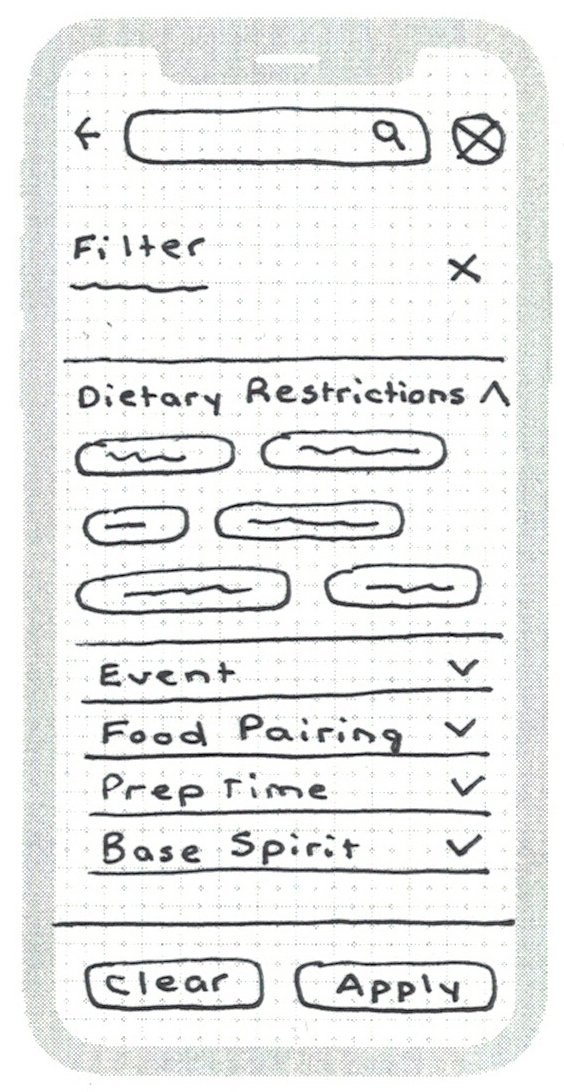 Filter
Dietary Restrictions
Event
Food Pairing
Prep Time
Base Spirit
Clear
Apply